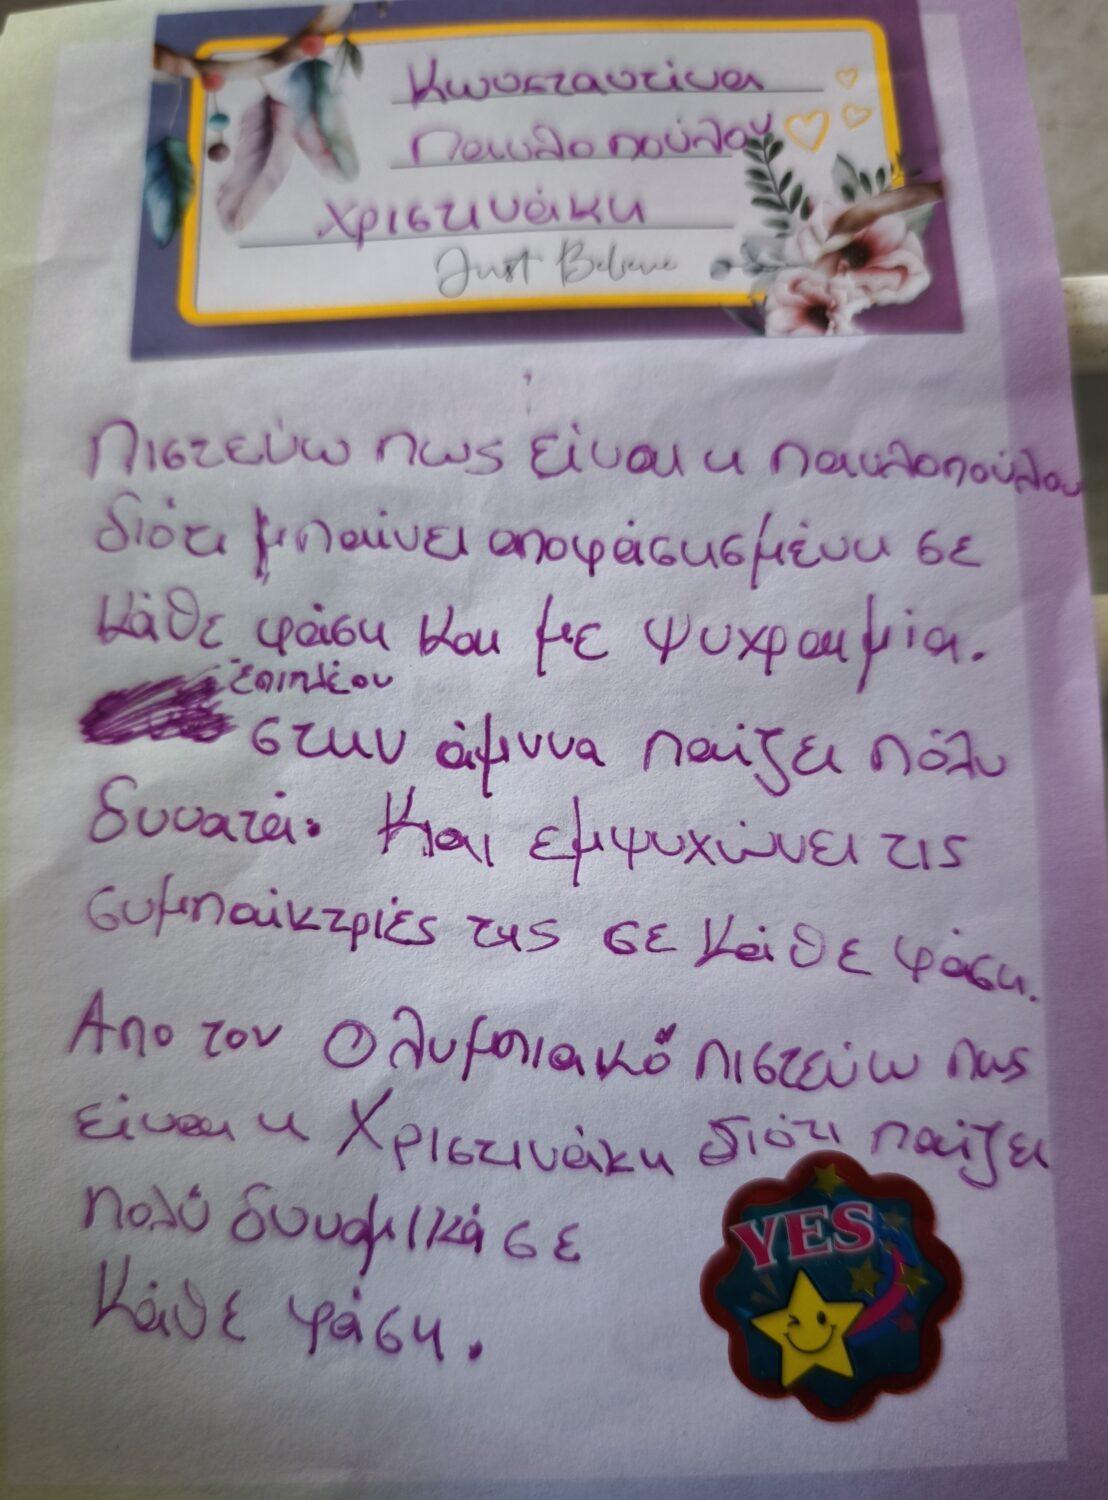 Κωνσταντίνα
Παυλοπούλου
Χριστινάκη
Just Believe
Πιστεύω πως είναι η παυλοπούλου
διότι μπαίνει αποφάσησμένη σε
κάθε φάση και με ψυχραιμία.
Επιπλέον
στην άμυνα παίζει πόλυ
δυνατά. Και εμψυχώνει τις
συμπαίκτριές της σε κάθε φάση.
Απο τον Ολυμπιακό πιστεύω πως
είναι η Χριστινάκη διότι παίζει
πολύ δυναμικά σε
κάθε φάση.
YES